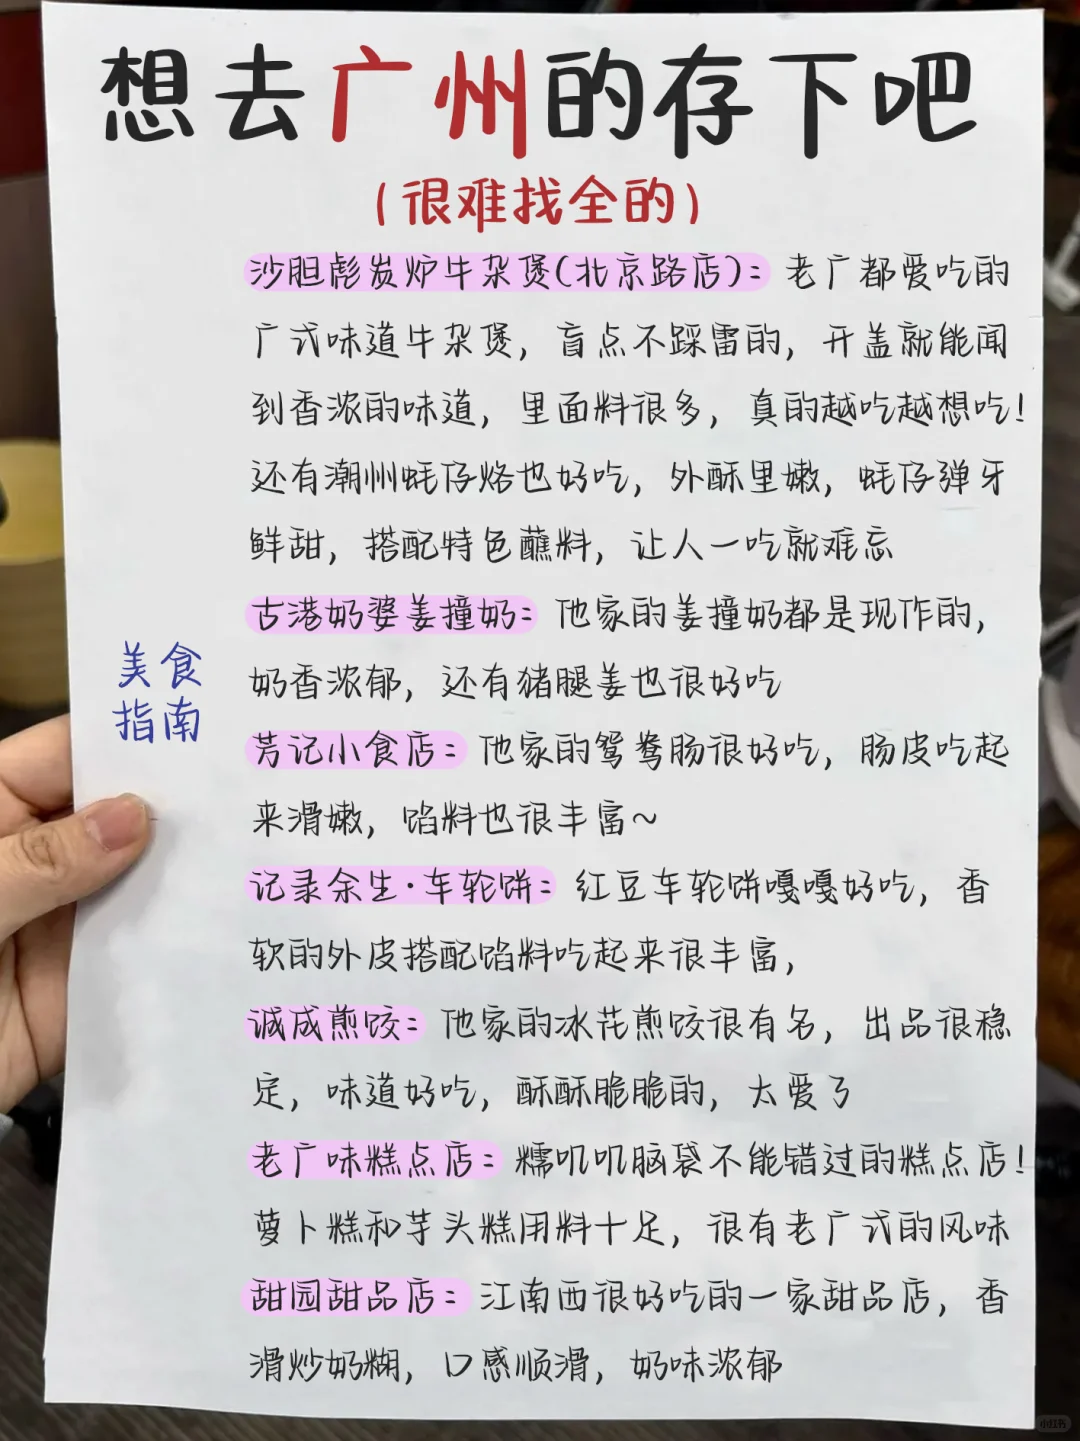 想去广州的存下吧
(很难找全的)
沙胆彪发炉牛杂煲(北京路店):老广都爱吃的
广式味道牛杂煲,盲点不踩雷的,开盖就能闻
到香浓的味道,里面料很多,真的越吃越想吃!
还有潮州蚝仔烙也好吃,外酥里嫩,蚝仔弹牙
鲜甜,搭配特色蘸料,让人一吃就难忘
古港奶婆姜撞奶:他家的姜撞奶都是现作的,
奶香浓郁,还有猪腿姜也很好吃
美食
指南
芳记小食店:他家的鸳鸯肠很好吃,肠皮吃起
来滑嫩,馅料也很丰富~
记录余生·车轮饼:红豆车轮饼嘎嘎好吃,香
软的外皮搭配馅料吃起来很丰富,
诚成煎饺:他家的冰花煎饺很有名,出品很稳
定,味道好吃,酥酥脆脆的,太爱了
老广味糕点店:糯叽叽脑袋不能错过的糕点店!
萝卜糕和芋头糕用料十足,很有老广式的风味
甜园甜品店:江南西很好吃的一家甜品店,香
滑炒奶糊,口感顺滑,奶味浓郁